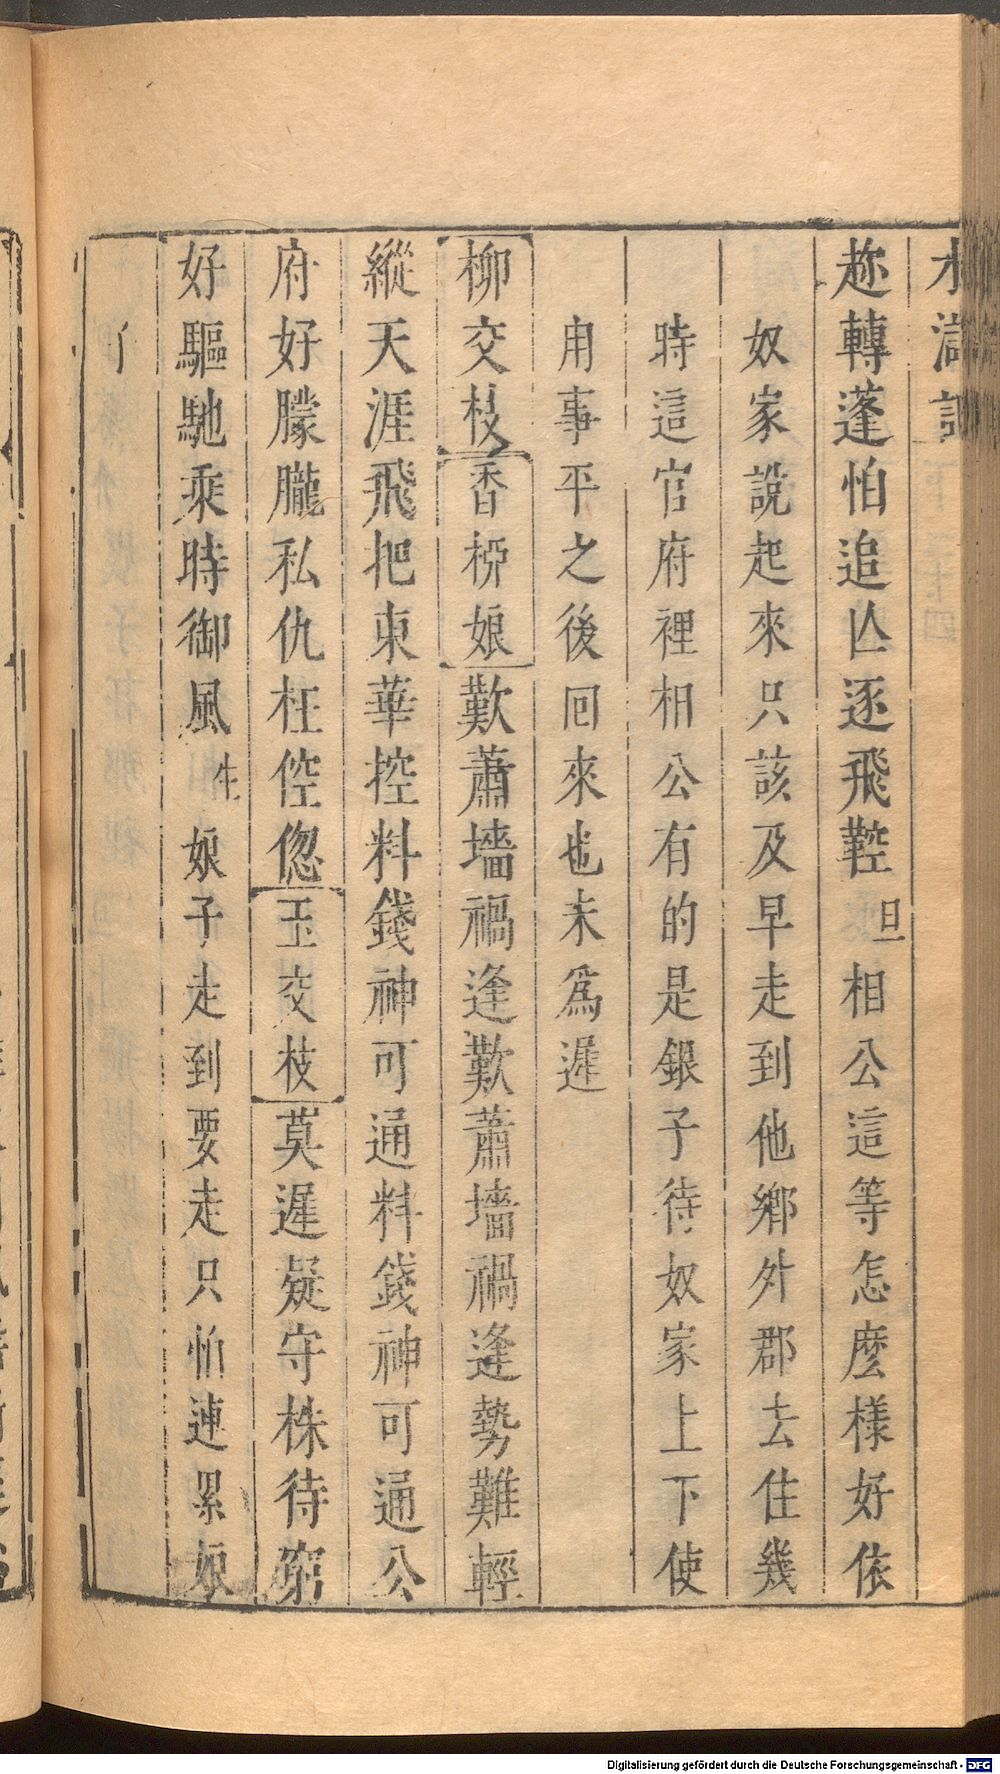 水滸記
趂轉蓬怕追亾逐飛鞚 旦 相公這等怎麽樣好依
奴家說起來只該及早走到他鄉外郡去住幾
時這官府裡相公有的是銀子待奴家上下使
用事平之後回來也未爲遲
柳交枝 香柳娘 歎蕭墻禍逢歎蕭墻禍逢勢難輕
縱天涯飛把束華控料錢神可通料錢神可通公
府好朦朧私仇枉倥偬 玉交枝 莫遲疑守株待窮
好驅馳乘時御風 生 娘子走到要走只怕連累娘
Digitalisierung gefördert durch die Deutsche Forschungsgemeinschaft - DFG